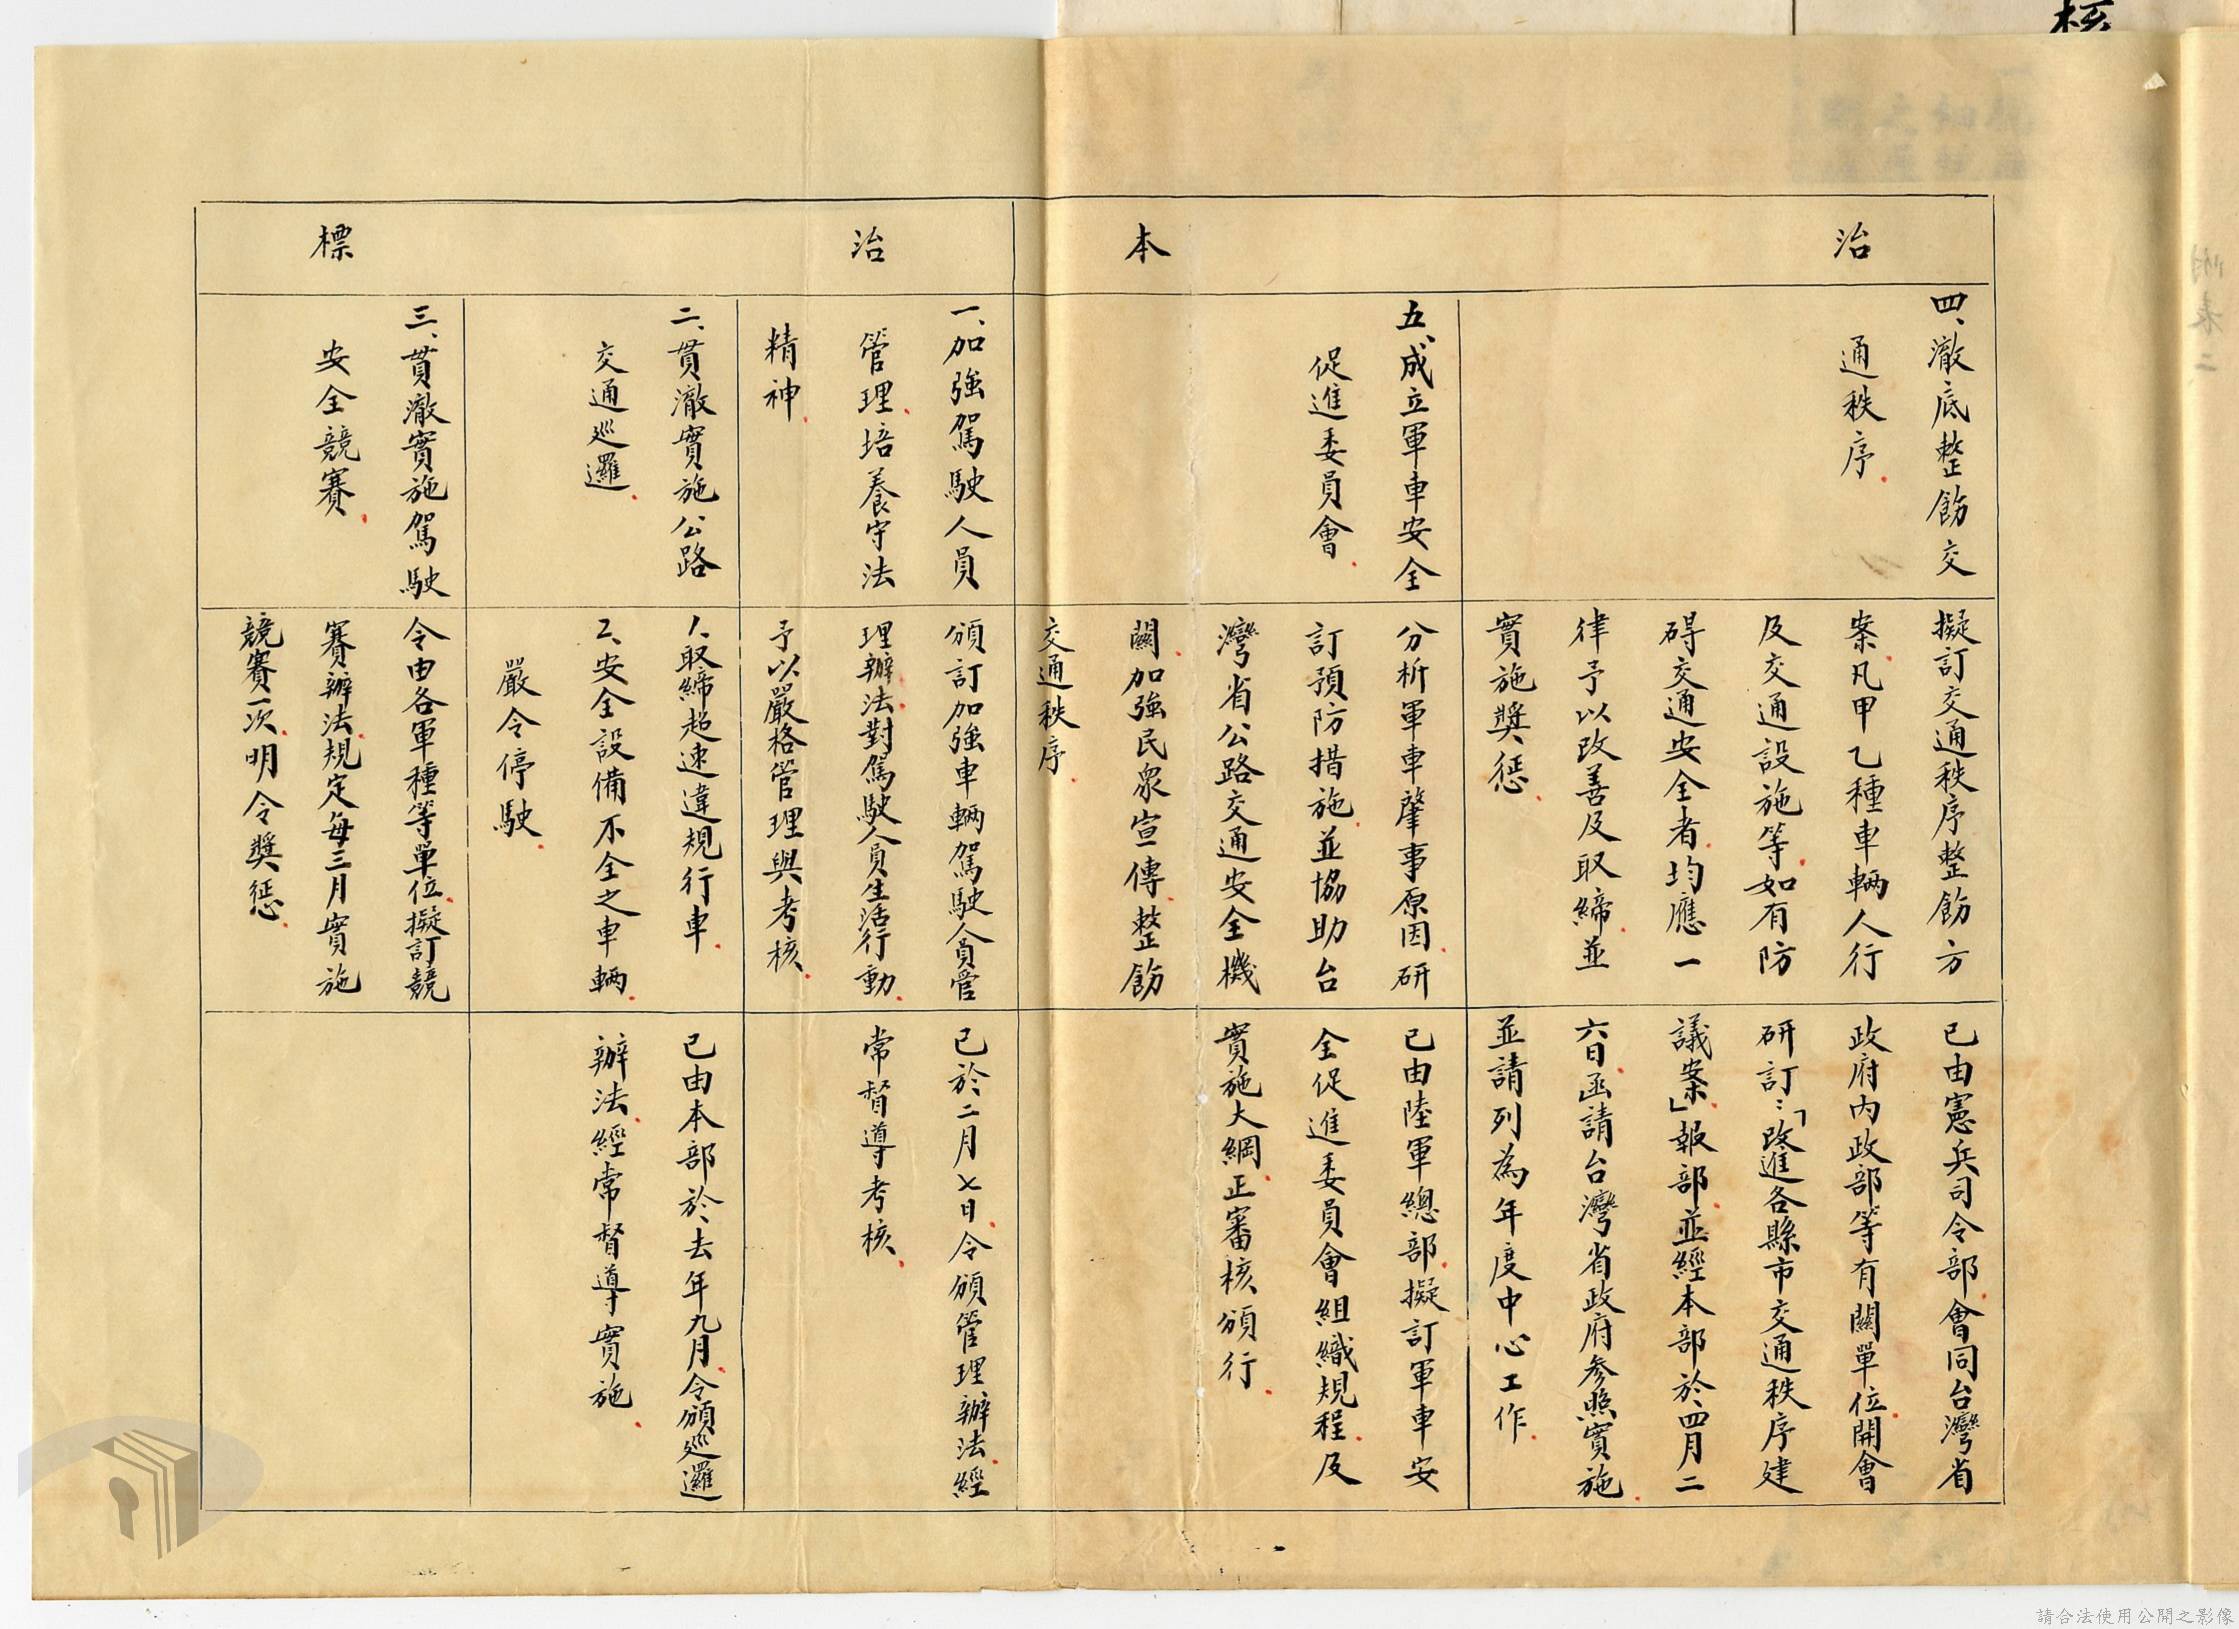 治本
四、澈底整飭交
通秩序
擬訂交通秩序整飭方
案凡甲乙種車輛人行
及交通設施等如有防
碍交通安全者均應一
律予以改善及取締並
實施獎懲
已由憲兵司令部會同台灣省
政府內政部等有關單位開會
研訂：「改進各縣市交通秩序建
議案」報部並經本部於四月二
六日函請台灣省政府參照實施
並請列為年度中心工作
五、成立軍車安全
促進委員會
分析軍車肇事原因研
訂預防措施並協助台
灣省公路交通安全機
關加強民眾宣傳整飭
交通秩序
已由陸軍總部擬訂軍車安
全促進委員會組織規程及
實施大綱正審核頒行
治標
一、加強駕駛人員
管理培養守法
精神
頒訂加強車輛駕駛人員管
理辦法對駕駛人員生活行動
予以嚴格管理與考核
已於二月七日令頒管理辦法經
常督導考核
二、貫澈實施公路
交通巡邏
1、取締超速違規行車
2、安全設備不全之車輛
嚴令停駛
已由本部於去年九月令頒巡邏
辦法經常督導實施
三、貫澈實施駕駛
安全競賽
令由各軍種等單位擬訂競
賽辦法規定每三月實施
競賽一次明令獎懲
附表二
請合法使用公開之影像